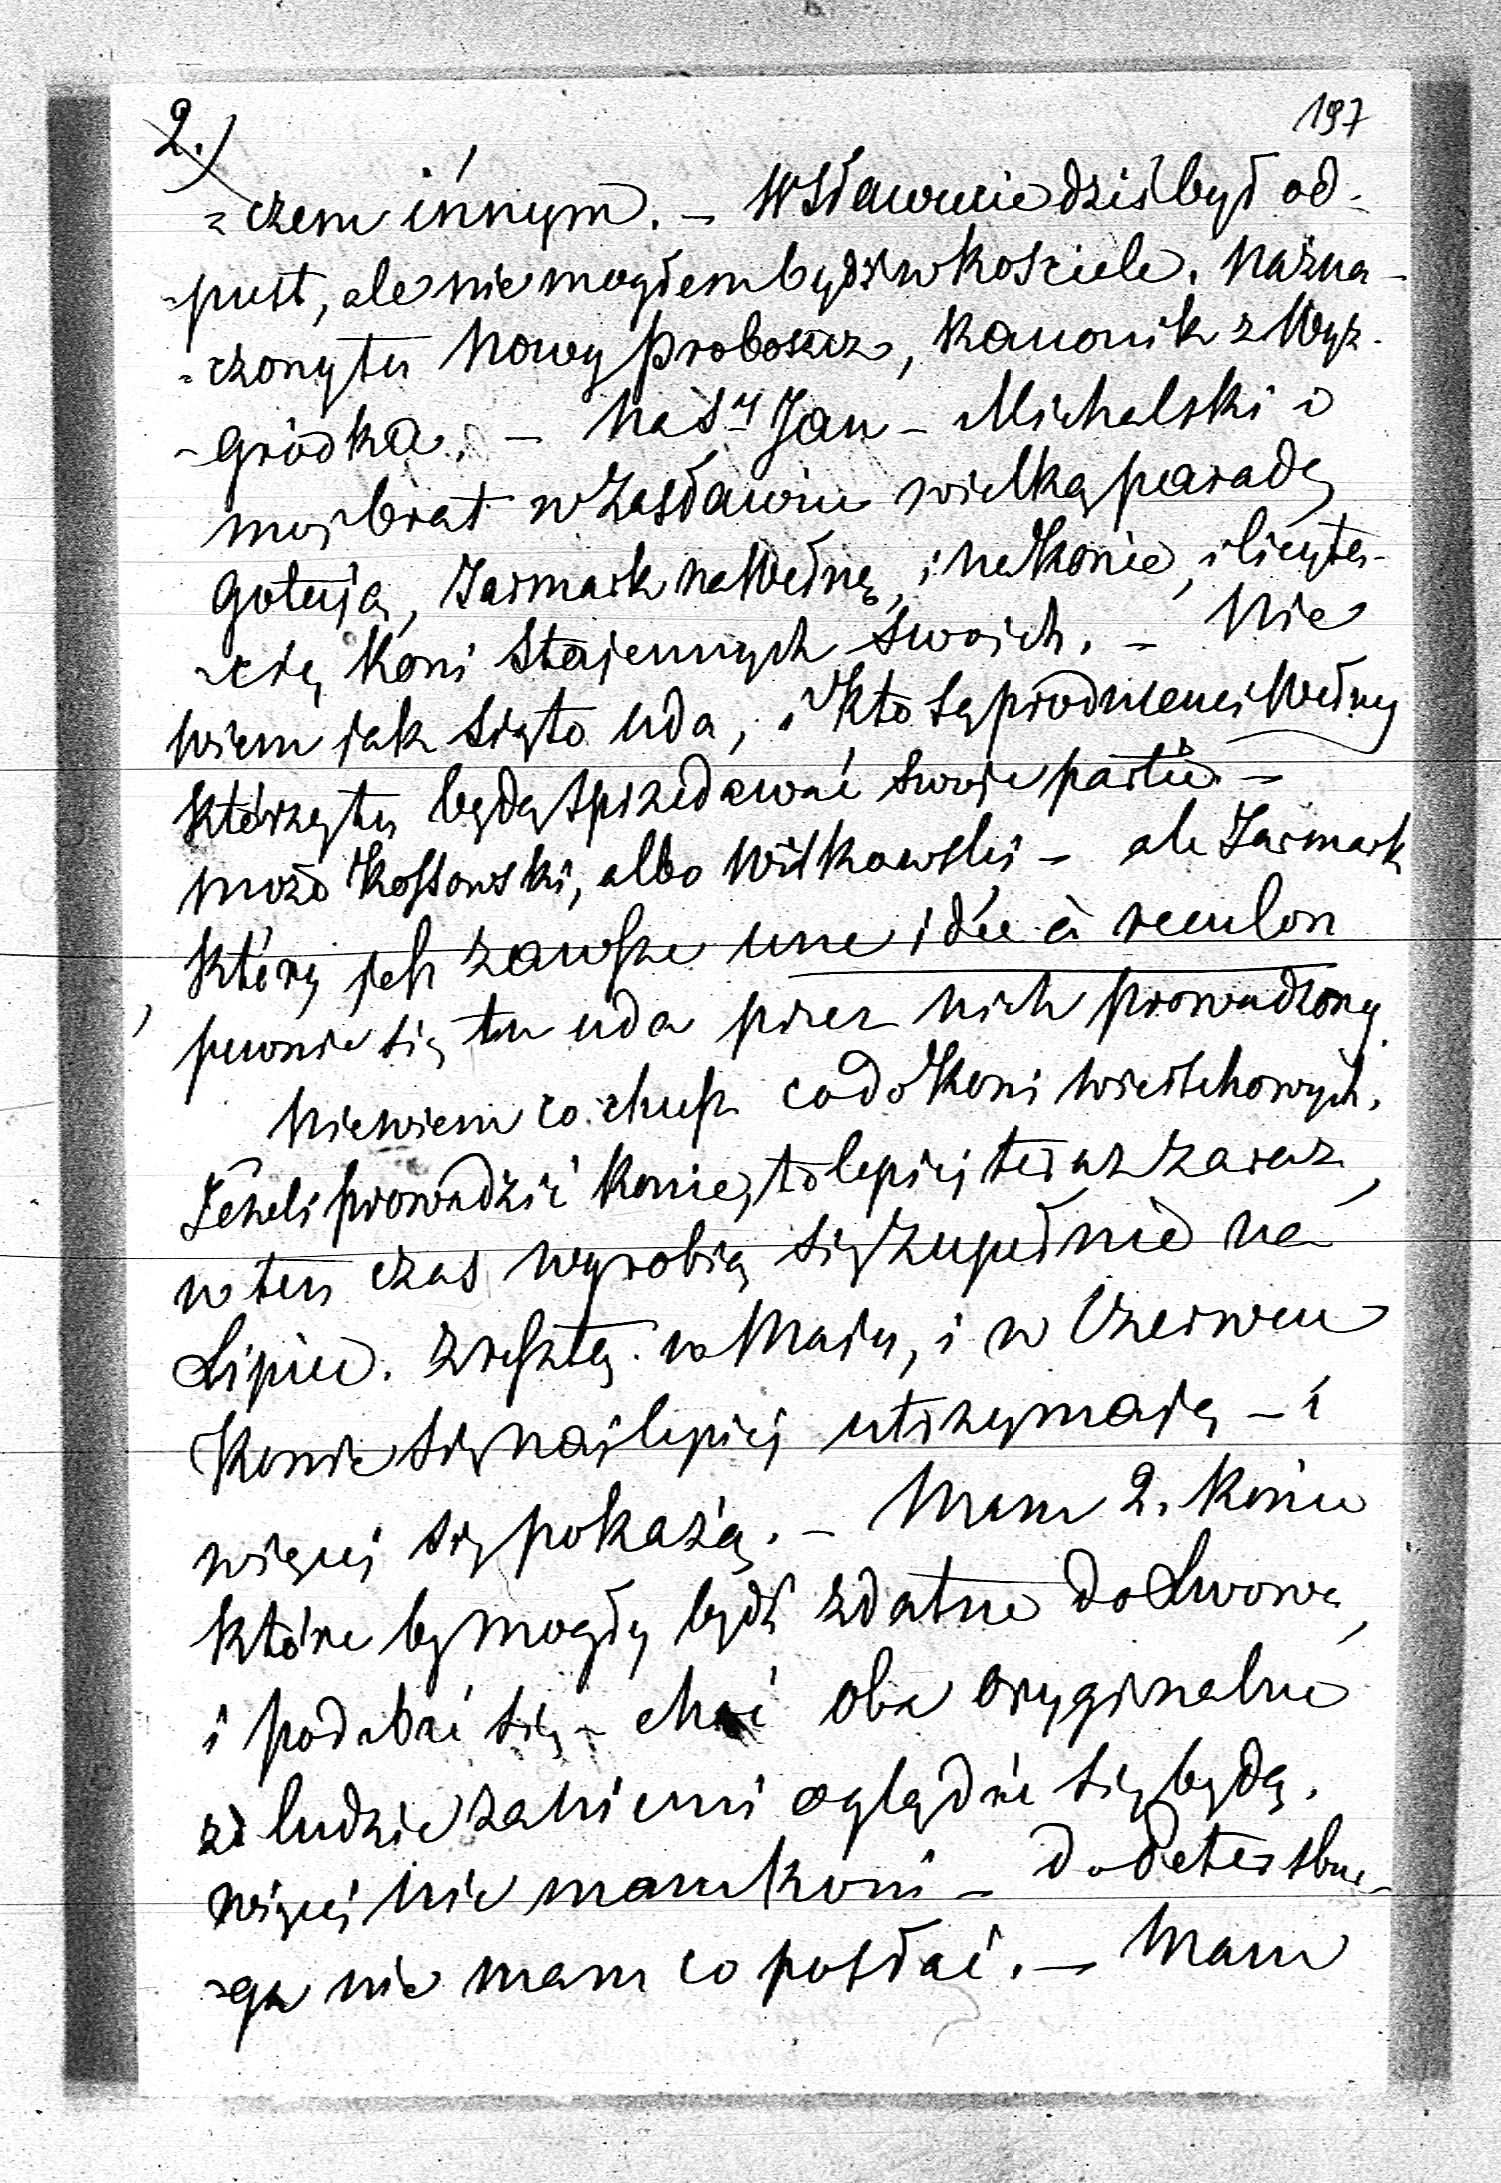 2.)
197
-czem innym. - W Sławucie dziś był od-
-pust, ale nie mogłem bydź w kościele. Nazna-
-czony tu Nowy Proboszcz, Kanonik z Wyż-
-gródka. - Na Sy Jan - Michalski i
moj brat w Zasławiu wielką paradę
gotują, Jarmark na Wełnę, i na Konie, i licyta-
-cię Koni Stajennych Swoich. - Nie
wiem jak się to uda, i Kto są producenci Wełny
którzy tu będą sprzedawać swoje partie -
może Kossowski, albo Witkowski - ale Jarmark
który jest zawsze une idée à reculon
pewnie się tu uda przez nich prowadzony.
Nie wiem co chcesz co do Koni wierzchowych.
Jeżeli prowadzić Konie, to lepiej teraz zaraz,
w ten czas wyrobią się zupełnie na
Lipiec. Zresztą w Maju, i w Czerwcu
Konie się najlepiej utrzymają - i
więcej się pokażą. - Mam 2. Konie
które by mogły bydź zdatne do Lwowa,
i podobać się - choć oba oryginalne
że ludzie za niemi oglądać się będą.
więcej nie mam koni - do Petersbur-
-ga nie mam co posłać. - Mam